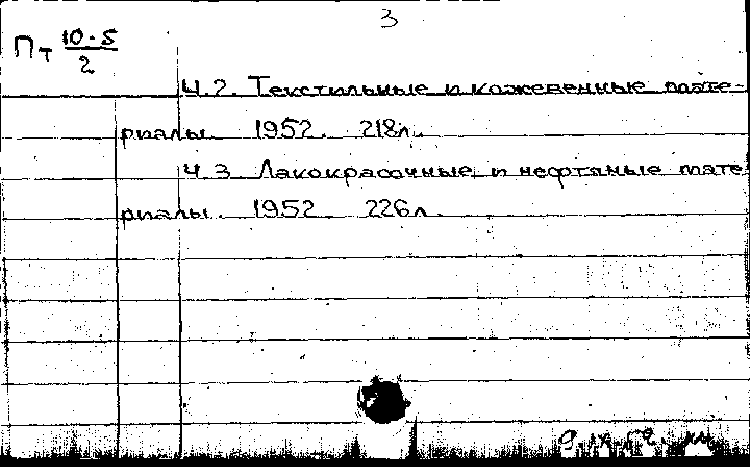 3
Пт 10.5
2
Ч.2. Текстильные и кожевенные мате-
риалы. 1952. 218л.
Ч.3 Лакокрасочные и нефтяные мате
риалы. 1952 226л.
9.IX.52.